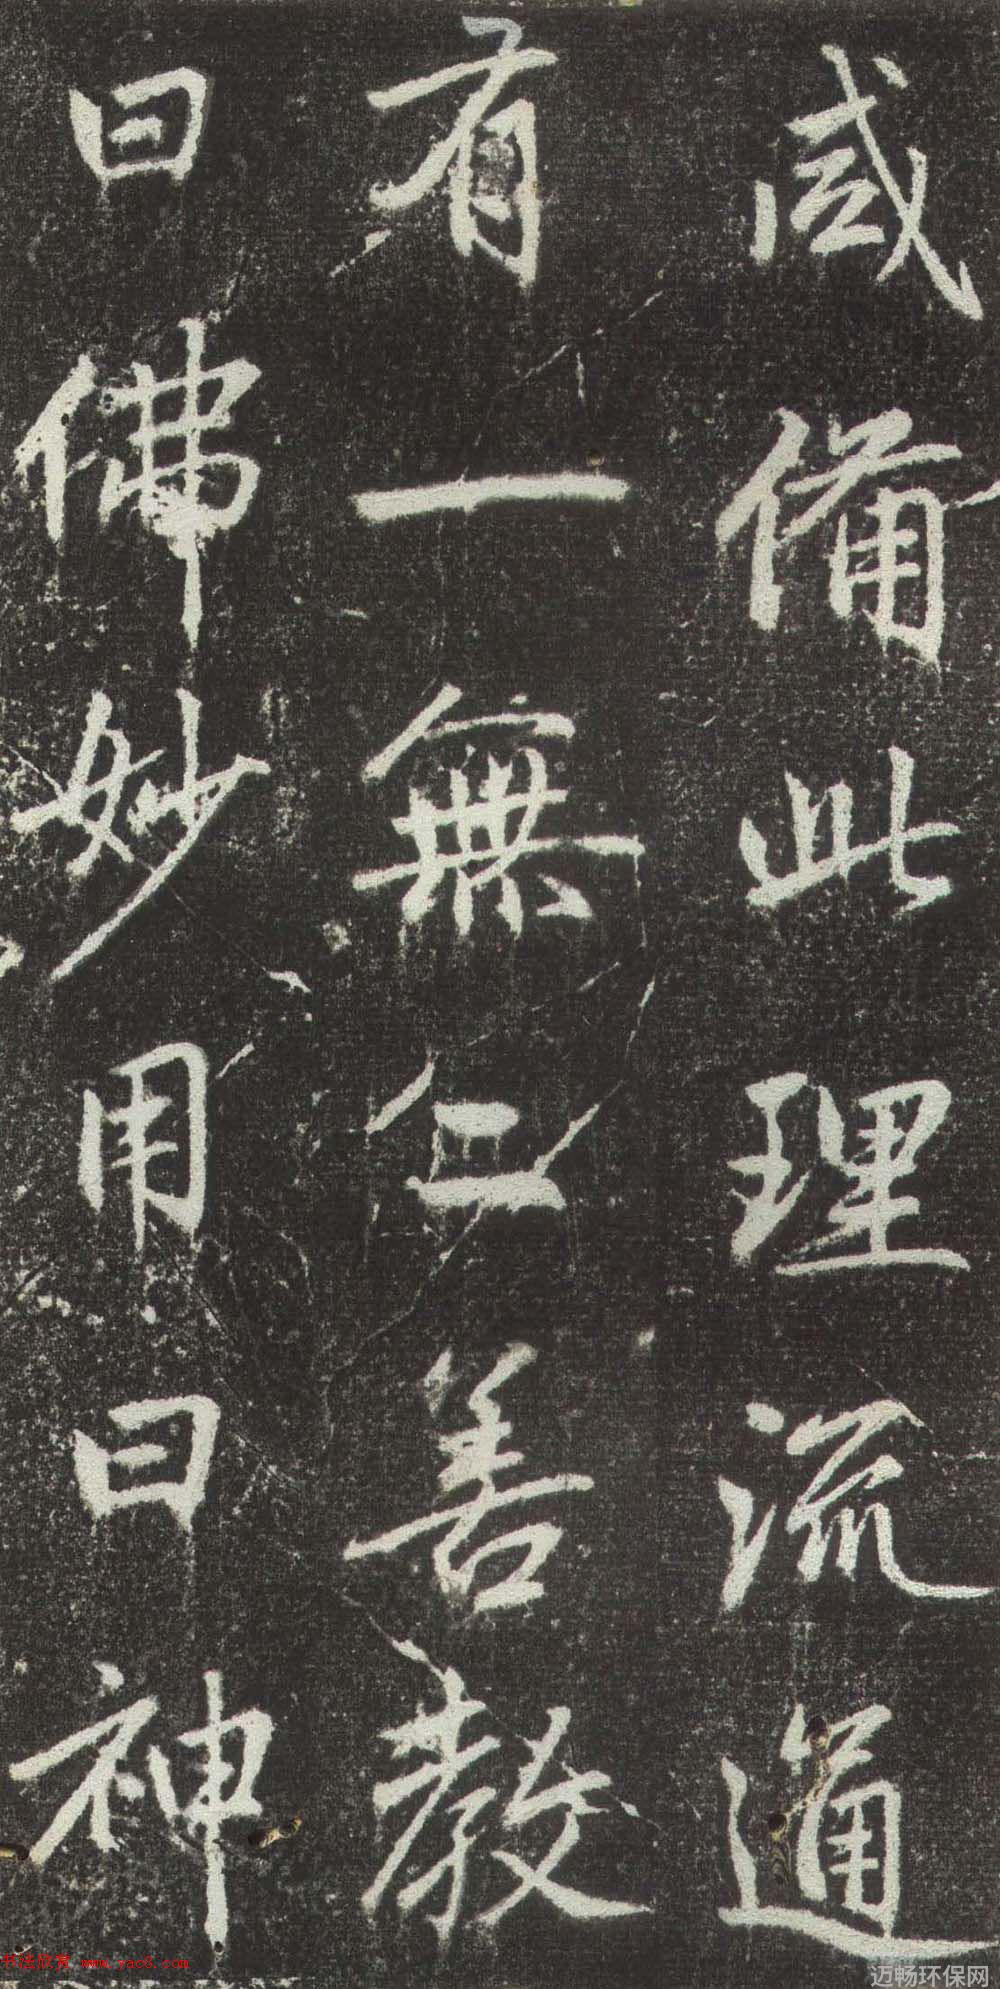 咸備此理流通
有一無二善教
曰佛妙用曰神
书法欣赏 www.yac8.com
迈畅环保网